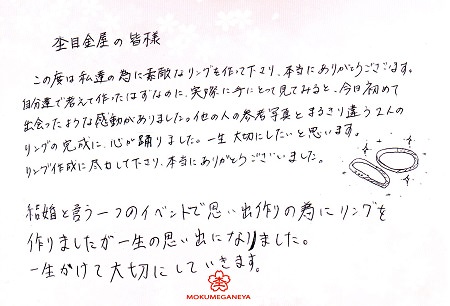 杢目金屋の皆様
この度は私達の為に素敵なリングを作って下さり、本当にありがとうございます。
自分達で考えて作ったはずなのに、実際に手にとって見てみると、今日初めて
出会ったような感動がありました。他の人の参考写真とまるきり違う2人の
リングの完成に、心が踊りました。一生大切にしたいと思います。
リング作成に尽力して下さり、本当にありがとうございました。
結婚と言う一つのイベントで思い出作りの為にリングを
作りましたが一生の思い出になりました。
一生かけて大切にしていきます。
MOKUMEGANEYA